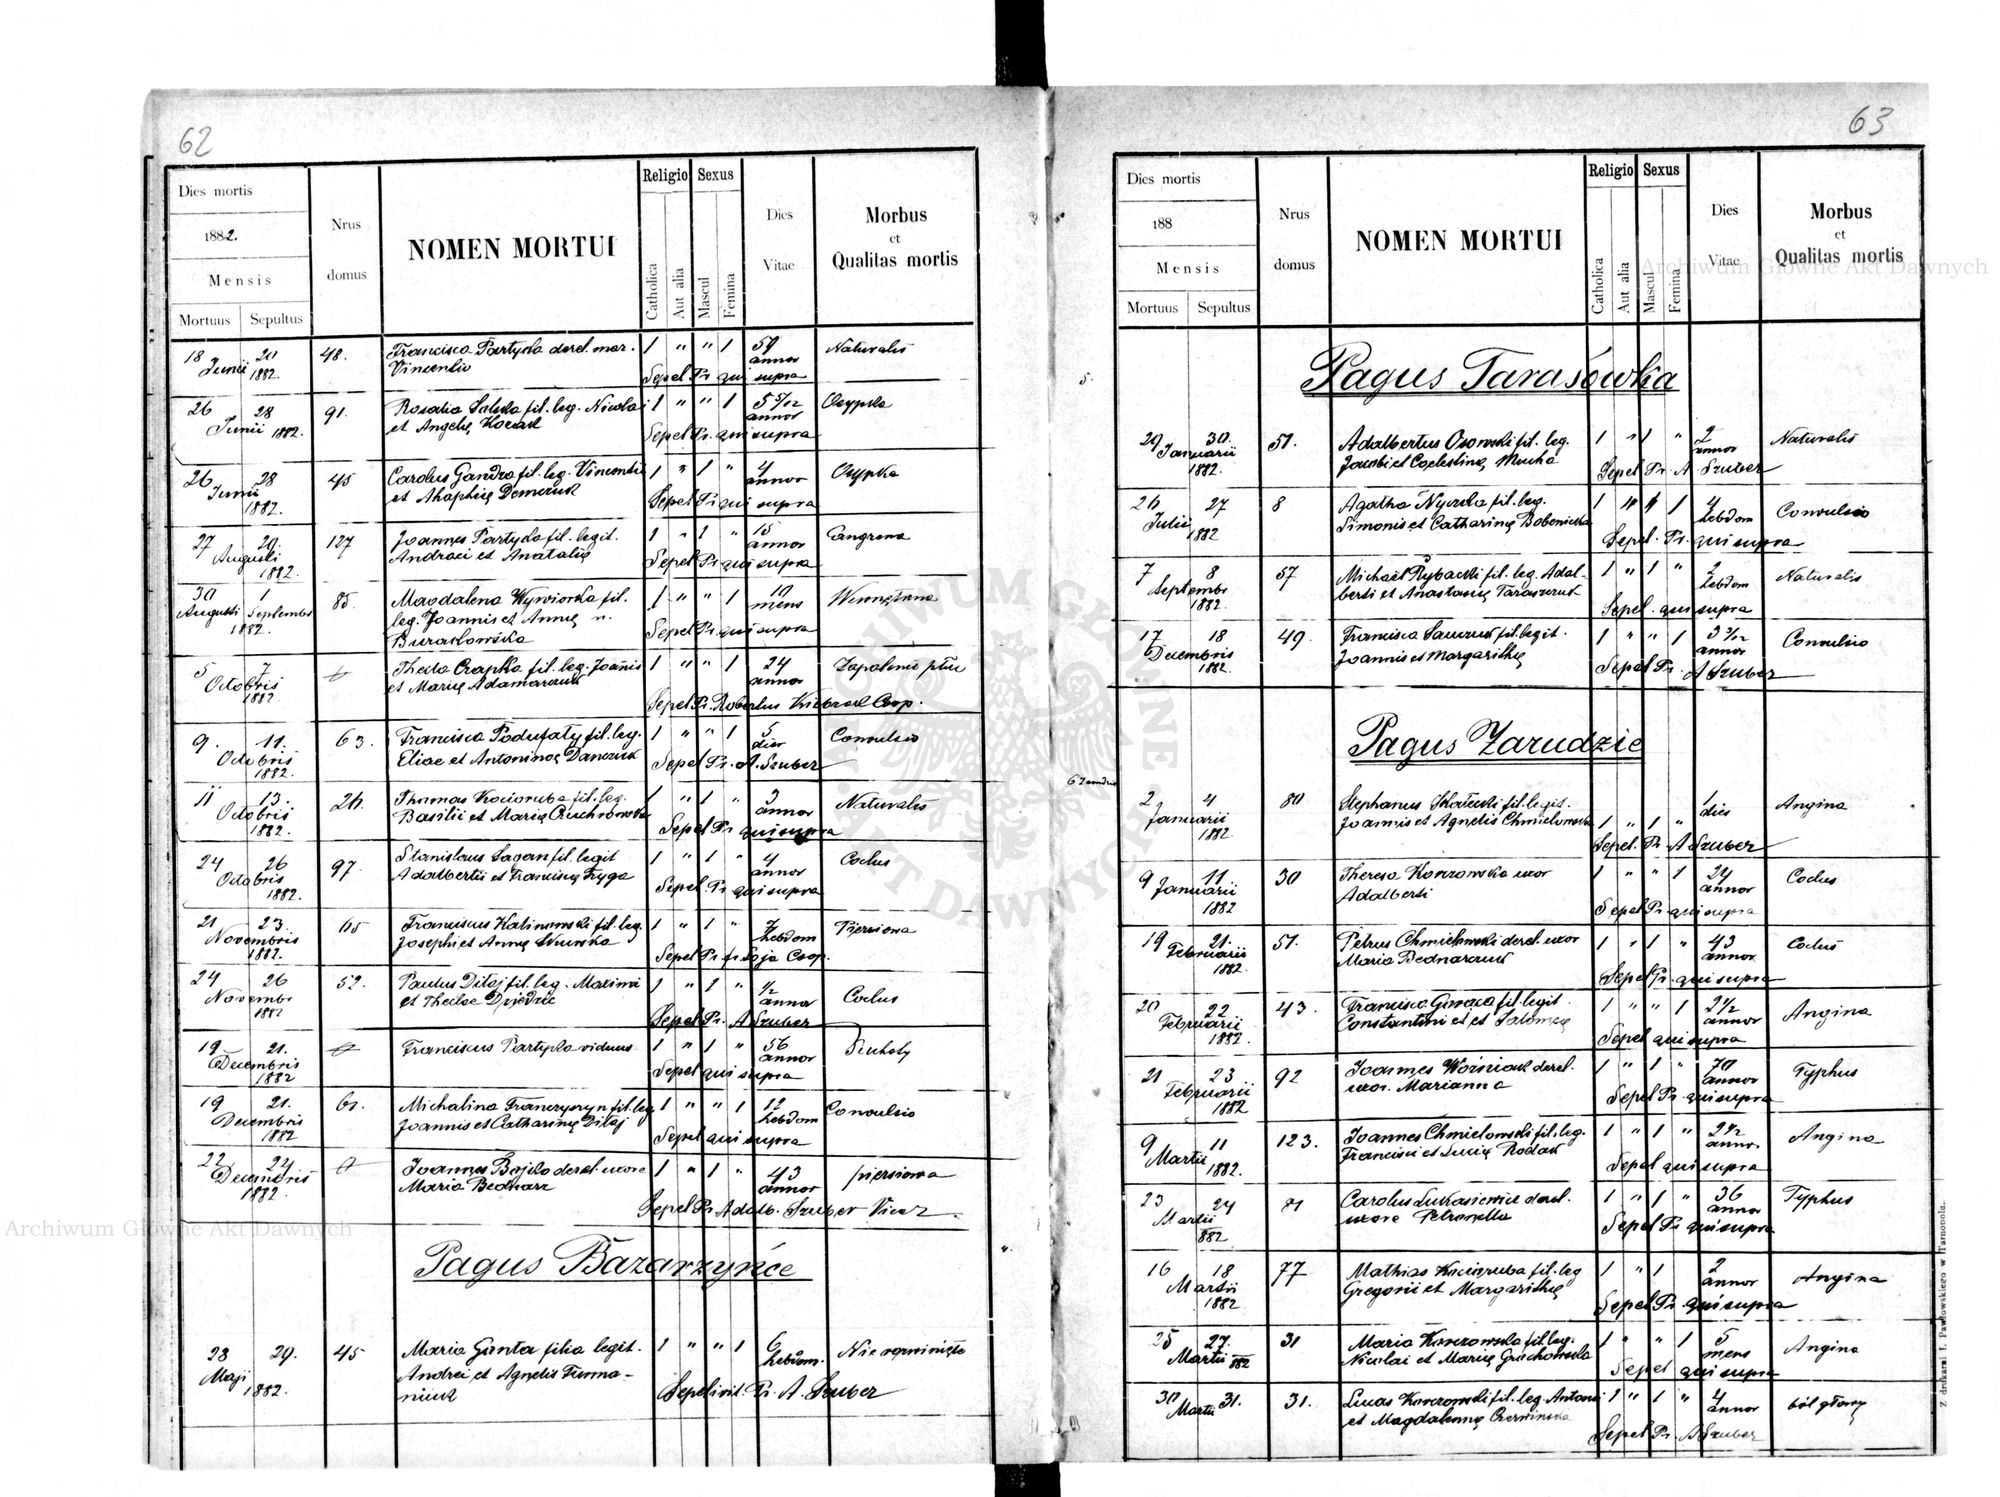 62
Dies mortis
1882.
Mensis
Mortuus Sepultus
Nrus domus
NOMEN MORTUI
Religio Sexus
Catholica Aut alia Mascul Femina
Dies Vitae
Morbus et Qualitas mortis
18 20 48. Francisca Partyka derel. mar. 1 " " 1 59 Naturalis
Junii 1882. Vincentio annor
Sepel Pr. qui supra
26 28 91. Rosalia fil. leg. Nicolai 1 " " 1 5 5/12 Osypka
Junii 1882. et Angelę Kozak annor
Sepel Pr. qui supra
26 28 45 Carolus Gandza fil. leg. Vincentii 1 " 1 " 4 Osypka
Junii 1882. et Ahaphię Demczuk annor
Sepel Pr. qui supra
27 29. 127 Joannes Partyka fil. legit. 1 " 1 " 15 Gangrena
Augusti 1882. Andraei et Anatalię annor
Sepel Pr. qui supra
30 1 85. Magdalena Wywiorka fil. 1 " " 1 10 Wewnętrzna
Augusti Septembr 1882. leg. Joannis et Annę n. mens
Burakowska Sepel Pr. qui supra
5 7 Thecla Czapka fil. leg. Joannis 1 " " 1 24 Zapalenie płuc
Octobris 1882. et Marię Adamarczuk annor
Sepel Pr. Robertus Coop.
9. 11. 63. Francisca Podufaly fil. leg. 1 " " 1 5 Convulsio
Octobris 1882. Eliae et Antoninae Danczuk dier
Sepel Pr. A. Szuber
11 13. 26. Thomas Kocioruba fil. leg. 1 " 1 " 3 Naturalis
Octobris 1882. Basilii et Marię annor
Sepel Pr qui supra
24 26 97. Stanislaus Sagan fil. legit 1 " 1 " 4 Coclus
Octobris 1882. Adalbertii et Franciscę Fryga annor
Sepel Pr qui supra
21 23 65 Franciscus Kalinowski fil. leg. 1 " 1 " 7 Piersiowa
Novembris 1882. Josephi et Annę hebdom
Sepel Pr. fr. Soja Coop.
24 26 52. Paulus Ditaj fil. leg. Maximi 1 " 1 " 1/2 Coclus
Novembr 1882 et Theclae annor
Sepel Pr. A Szuber
19 21. Franciscus Partyka viduus 1 " 1 " 56 Suchoty
Decembris 1882 annor
Sepel qui supra
19 21. 61. Michalina Franczyszyn fil. leg. 1 " " 1 12 Convulsio
Decembris 1882 Joannis et Catharinę Ditaj hebdom
Sepel qui supra
22 24 Joannes Bojko derel. uxore 1 " 1 " 43 piersiowa
Decembris 1882. Maria Bednarz annor
Sepel Pr. Adalb. Szuber Vicar.
Pagus Bazarzyńce
28 29. 45 Maria Ganta filia legit. 1 " " 1 6 Nierozwinięte
Maji 1882. Andrei et Agnetis Furma- hebdom.
niuk Sepelivit. Pr. A. Szuber
63
Dies mortis
188
Mensis
Mortuus Sepultus
Nrus domus
NOMEN MORTUI
Religio Sexus
Catholica Aut alia Mascul Femina
Dies Vitae
Morbus et Qualitas mortis
Pagus Tarasówka
29 30. 51. Adalbertus Osowski fil. leg. 1 " 1 " 2 Naturalis
Januarii 1882. Jacobi et Coelestinę Mucha annor
Sepel Pr. A. Szuber
26 27 8 Agatha Nyczka fil. leg. 1 " " 1 4 Convulsio
Julii 1882 Simonis et Catharinę hebdom
Sepel. Pr. qui supra
7 8 57 Michael Rybacki fil. leg. Adal- 1 " 1 " 2 Naturalis
Septembr 1882. berti et Anastasię Taraszczuk hebdom
Sepel. qui supra
17 18 49. Francisca Sawczuk fil. legit. 1 " " 1 3 3/12 Convulsio
Decembris 1882. Joannis et Margarithę annor
Sepel Pr. A Szuber
Pagus Zarudzie
2 4 80 Stephanus Skalecki fil. legit. 1 Angina
Januarii 1882. Joannis et Agnetis Chmielowska 1 " 1 " dies
Sepel. Pr. A Szuber
9 11 30 Theresa Korzowska uxor 1 " " 1 24 Coclus
Januarii 1882 Adalberti annor
Sepel Pr. qui supra
19 21. 51. Petrus Chmielowski derel. uxor 1 " 1 " 43 Coclus
Februarii 1882. Maria Bednarczuk annor
Sepel Pr. qui supra
20 22 43. Francisca fil. legit. 1 " " 1 2 1/2 Angina
Februarii 1882. Constantini et et Salomeę annor
Sepel qui supra
21 23 92 Joannes Woźniak derel. 1 " 1 " 70 Typhus
Februarii 1882 uxor. Marianna annor
Sepel Pr. qui supra
9 11 123. Joannes Chmielowski fil. leg. 1 " 1 " 2 1/2 Angina
Martii 1882. Francisci et Lucię Rodak annor.
Sepel qui supra
23 24 71 Carolus Lukasiewicz derel. 1 " 1 " 36 Typhus
Martii 882 uxore Petronella annor
Sepel Pr qui supra
16 18 77 Mathias Kocioruba fil. leg 1 " 1 2 Angina
Martii 1882 Gregorii et Margarithę annor
Sepel Pr. qui supra
25 27. 31 Maria Korzowska fil. leg. 1 " " 1 5 Angina
Martii 882 Nicolai et Marię Grochowska mens
Sepel qui supra
30 31. 31. Lucas Korzowski fil. leg. Antonii 1 " 1 " 4 ból głowy
Martii et Magdalennę Czerwinska annor
Sepel Pr. A Szuber
Z drukarni J. Pawłowskiego w Tarnopolu.
Archiwum Główne Akt Dawnych
Archiwum Główne Akt Dawnych
ARCHIWUM GŁÓWNE AKT DAWNYCH